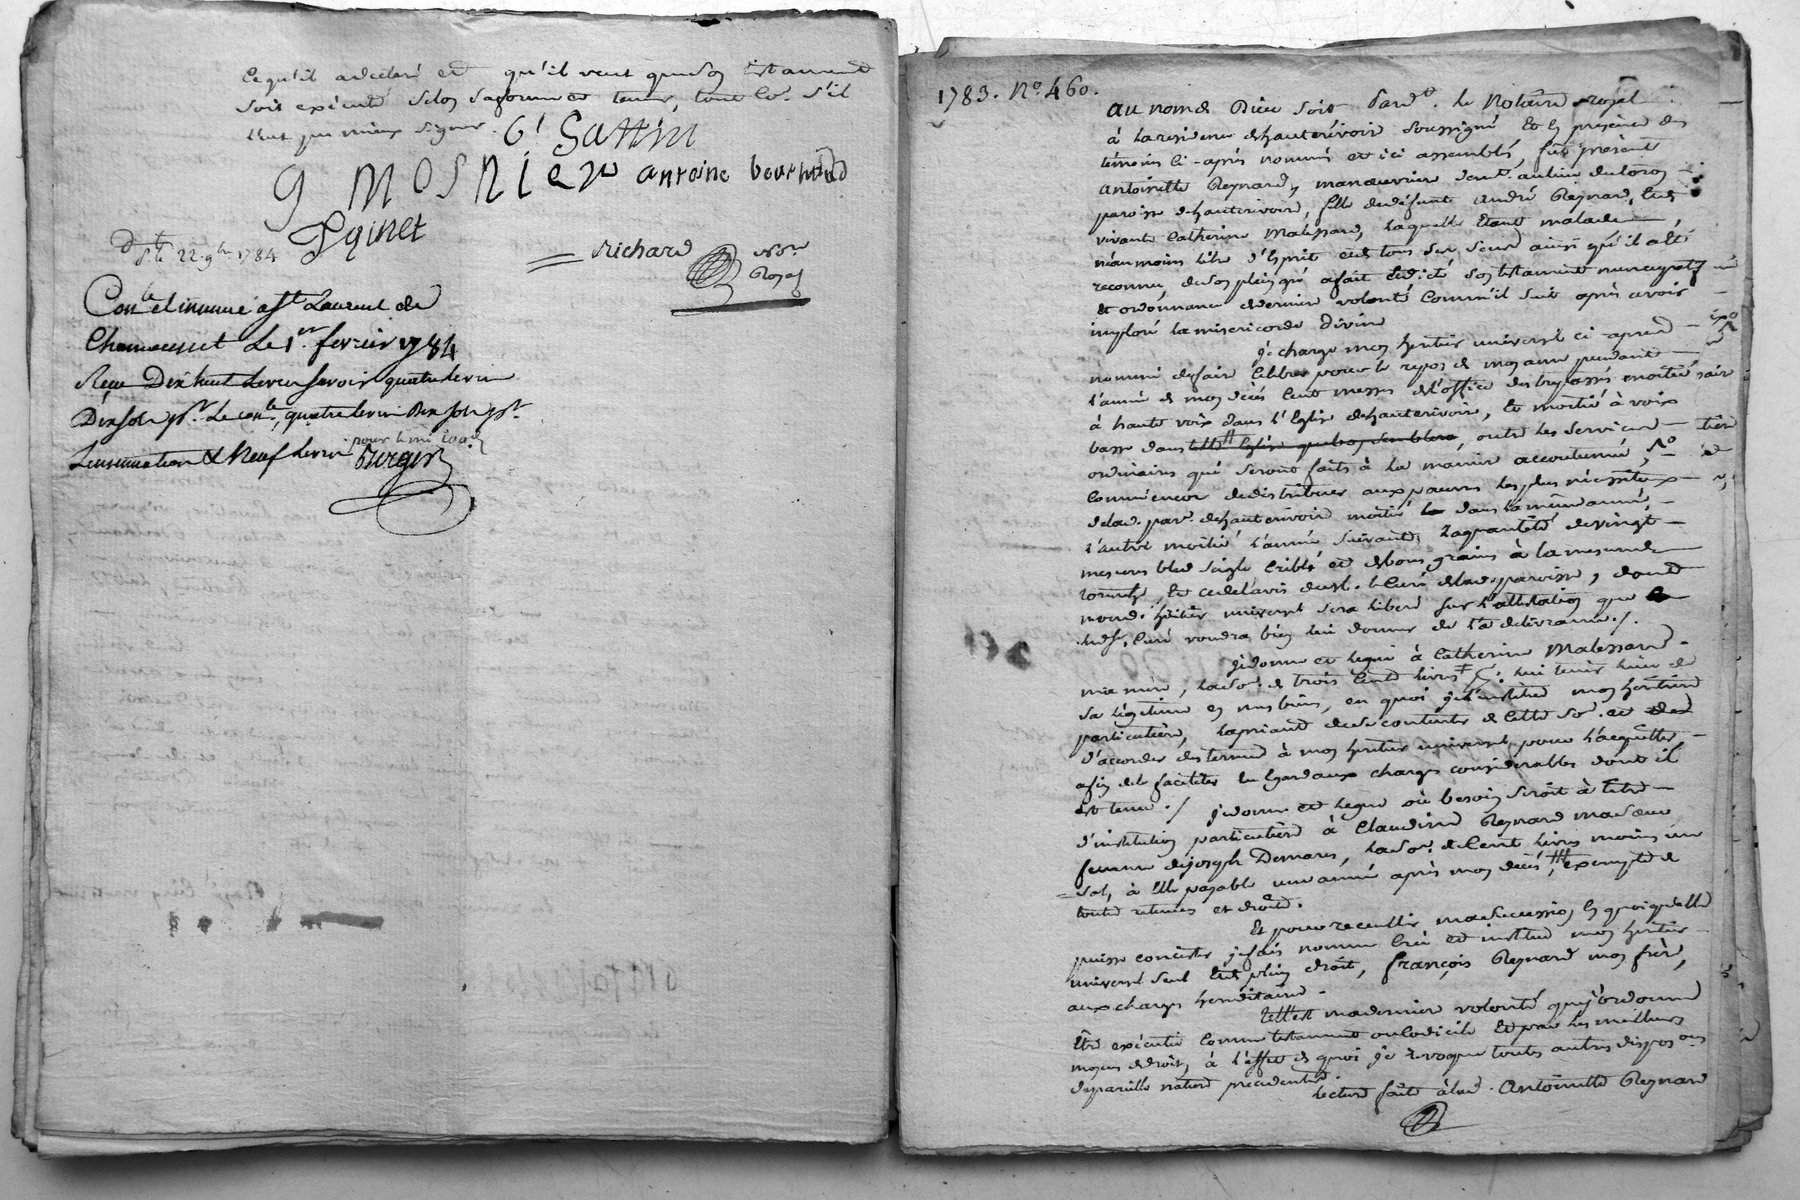 Ce qu'il a déclaré et qu'il veut que son testament
soit exécuté selon sa forme et teneur, s'il
peut que mieux signer. Ct Gattin
g MOSNIER antoine
Pginet
Richard nore
Royal
22 9bre 1784
Conlé et insinué a St Laurent de
Chamousset Le 1er fevrier 1784
Recu Dix huit Livres savoir quatre Livres
Dix sols pr. Le conle, quatre Livres Dix sols pr
Linsinuation & Neuf Livres pour le mi 100d
1783. No. 460.
au nom de Dieu soit. Pardt. le Notaire royal
à la residence d'hauterivoire soussigné et en présence des
témoins ci-après nommés et ici assemblés, fut présente
antoinette Reynard, manœuvrière
paroisse d'hauterivoire, fille de défunt André Reynard, et de
vivante Catherine Malessard, laquelle étant malade,
néanmoins libre d'esprit et de tous ses sens ainsi qu'il a été
reconnu, de son plein gré a fait et dicté son testament nuncupatif
et ordonnance de dernière volonté comme il suit après avoir
imploré la misericorde divine
je charge mon héritier universel ci-après
nommé de faire célébrer pour le repos de mon ame pendant
l'année de mon décès cent messes de l'office des trépassés moitié
à haute voix dans l'Eglise d'hauterivoire, et moitié à voix
basse dans telle Eglise, outre les services
ordinaires qui seront faits à la manière accoutumée,
comme encor de distribuer aux pauvres les plus nécessiteux
de lad. par. d'hauterivoire moitié dans la même année,
l'autre moitié l'année suivante, la quantité de vingt
mesures bled seigle criblé et de bons grains à la mesure de
et ce de l'avis du sr. le curé de lad. paroisse, dont
mond. héritier universel sera libéré sur l'attestation que
led. sr. curé voudra bien lui donner de la délivrance./.
je donne et legue à Catherine Malessard
ma mère, la so. de trois cents livres, lui tenir lieu de
sa légitime en mes biens, en quoi je l'institue mon héritière
particulière, la priant de se contenter de cette so. et
d'accorder des termes à mon héritier universel pour l'acquitter
afin de le faciliter en égard aux charges considérables dont il
est tenu./ je donne et legue où besoin seroit à titre
d'institution particulière à Claudine Reynard ma sœur
femme de joseph Demares, la so. de cent livres moins un
sol, à elle payable une année après mon décès, exempte de
toutes retenües et droits.
Et pour receuillir ma succession en quoi qu'elle
puisse consister je fais nomme crée et institue mon héritier
universel seul et de plein droit, françois Reynard mon frère,
aux charges héréditaires.
telle est ma dernière volonté que j'ordonne
être exécutée comme testament ou codicile et par les meilleurs
moyens de droit, à l'effet de quoi je révoque toutes autres disposons
de pareille nature précédentes.
Lecture faite à lad. Antoinette Reynard